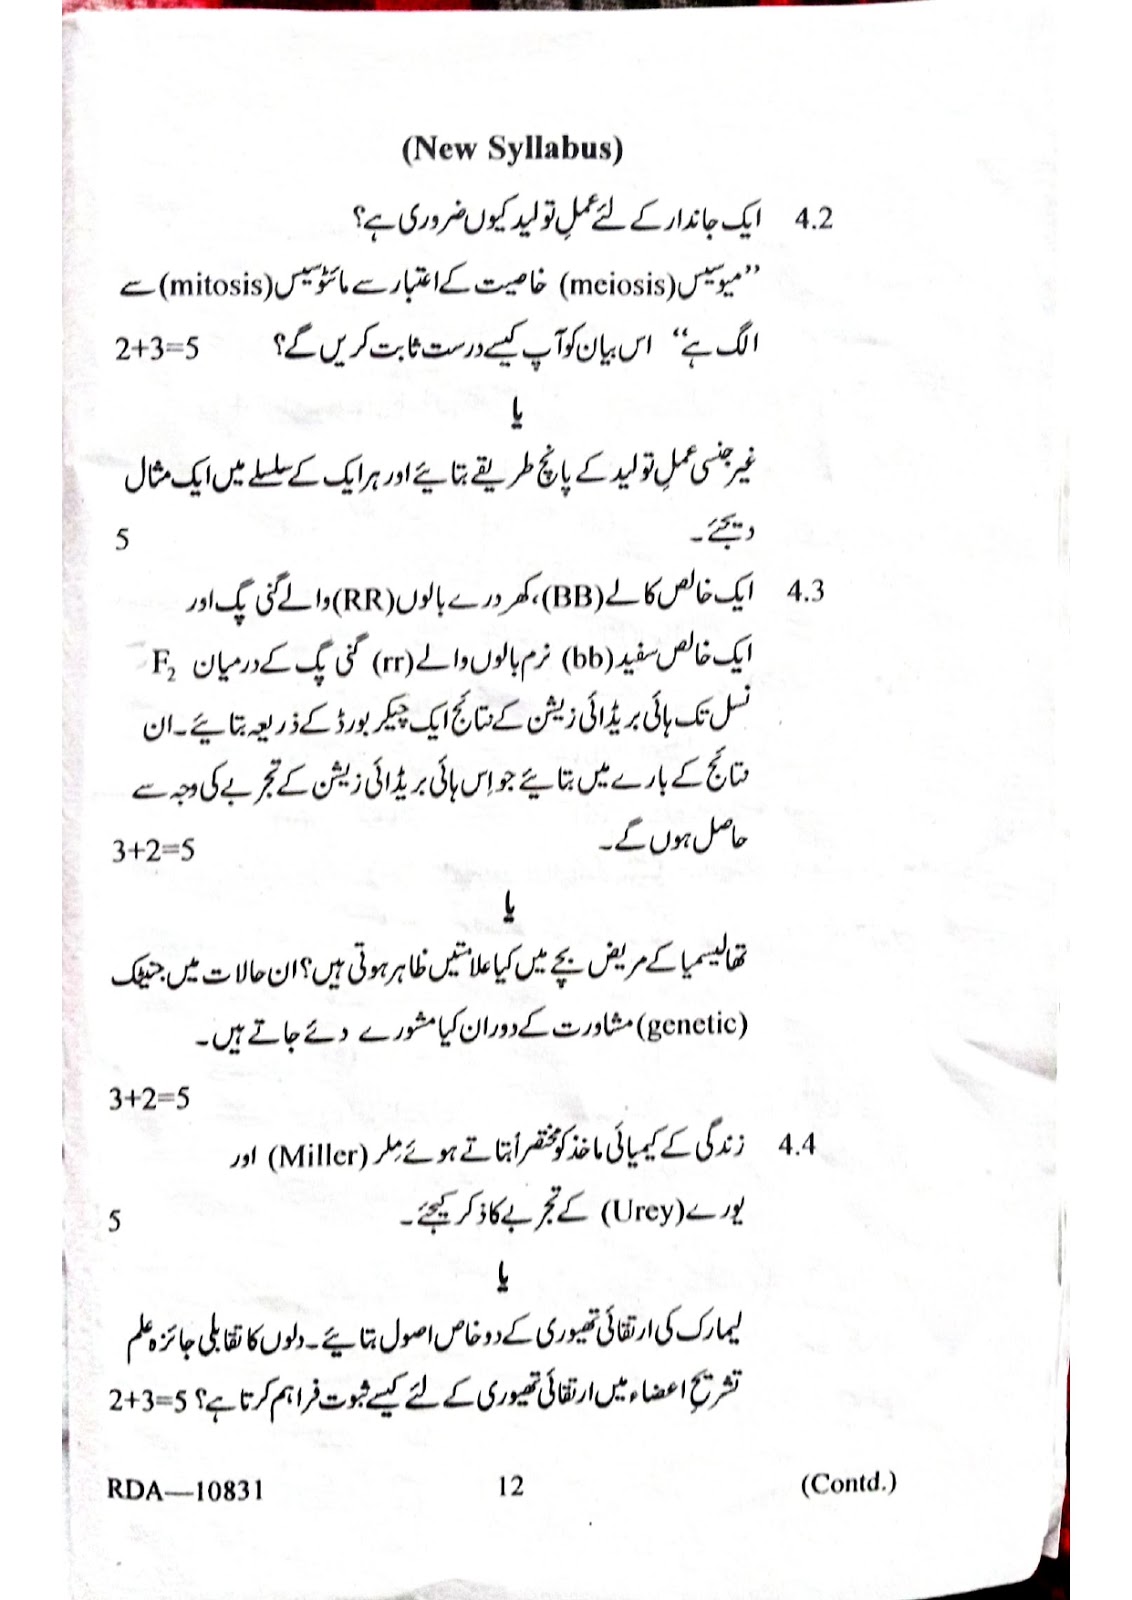 (New Syllabus)
4.2 ایک جاندار کے لئے عملِ تولید کیوں ضروری ہے؟
”میوسیس(meiosis) خاصیت کے اعتبار سے مائٹوسیس(mitosis) سے
الگ ہے“ اس بیان کو آپ کیسے درست ثابت کریں گے؟ 2+3=5
یا
غیر جنسی عملِ تولید کے پانچ طریقے بتایئے اور ہر ایک کے سلسلے میں ایک مثال
دیجئے۔ 5
4.3 ایک خالص کالے(BB)، کھردرے بالوں(RR) والے گنی پگ اور
ایک خالص سفید(bb) نرم بالوں والے(rr) گنی پگ کے درمیان F₂
نسل تک ہائی بریڈائی زیشن کے نتائج ایک چیکر بورڈ کے ذریعہ بتایئے۔ ان
نتائج کے بارے میں بتایئے جو اِس ہائی بریڈائی زیشن کے تجربے کی وجہ سے
حاصل ہوں گے۔ 3+2=5
یا
تھالیسمیا کے مریض بچے میں کیا علامتیں ظاہر ہوتی ہیں؟ ان حالات میں جنیٹک
(genetic) مشاورت کے دوران کیا مشورے دئے جاتے ہیں۔
3+2=5
4.4 زندگی کے کیمیائی ماخذ کو مختصراً بتاتے ہوئے مِلر (Miller) اور
یورے(Urey) کے تجربے کا ذکر کیجئے۔ 5
یا
لیمارک کی ارتقائی تھیوری کے دو خاص اصول بتایئے۔ دلوں کا تقابلی جائزہ علم
تشریحِ اعضاء میں ارتقائی تھیوری کے لئے کیسے ثبوت فراہم کرتا ہے؟ 2+3=5
RDA—10831 12 (Contd.)